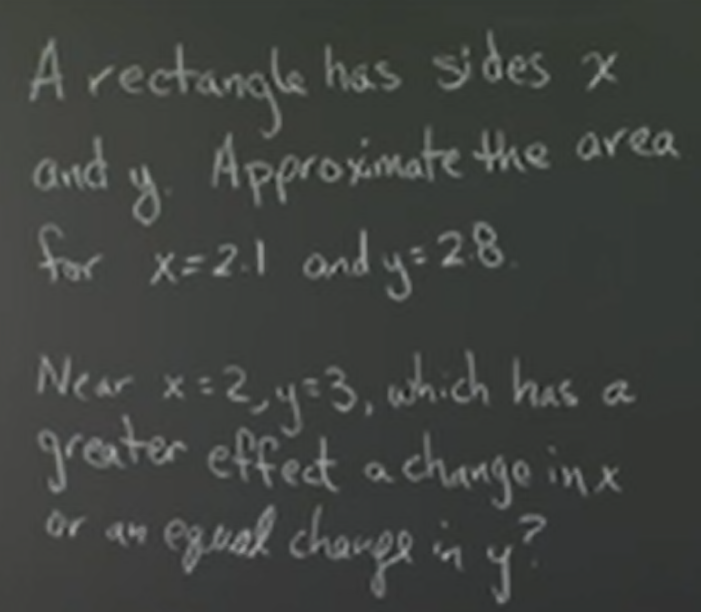 A rectangle has sides x
and y. Approximate the area
for x=2.1 and y=2.8.
Near x=2, y=3, which has a
greater effect a change in x
or an equal change in y?